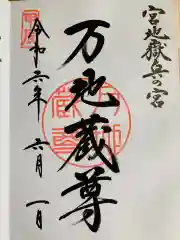 宮地嶽奥の宮
万地蔵尊
令和六年六月一日